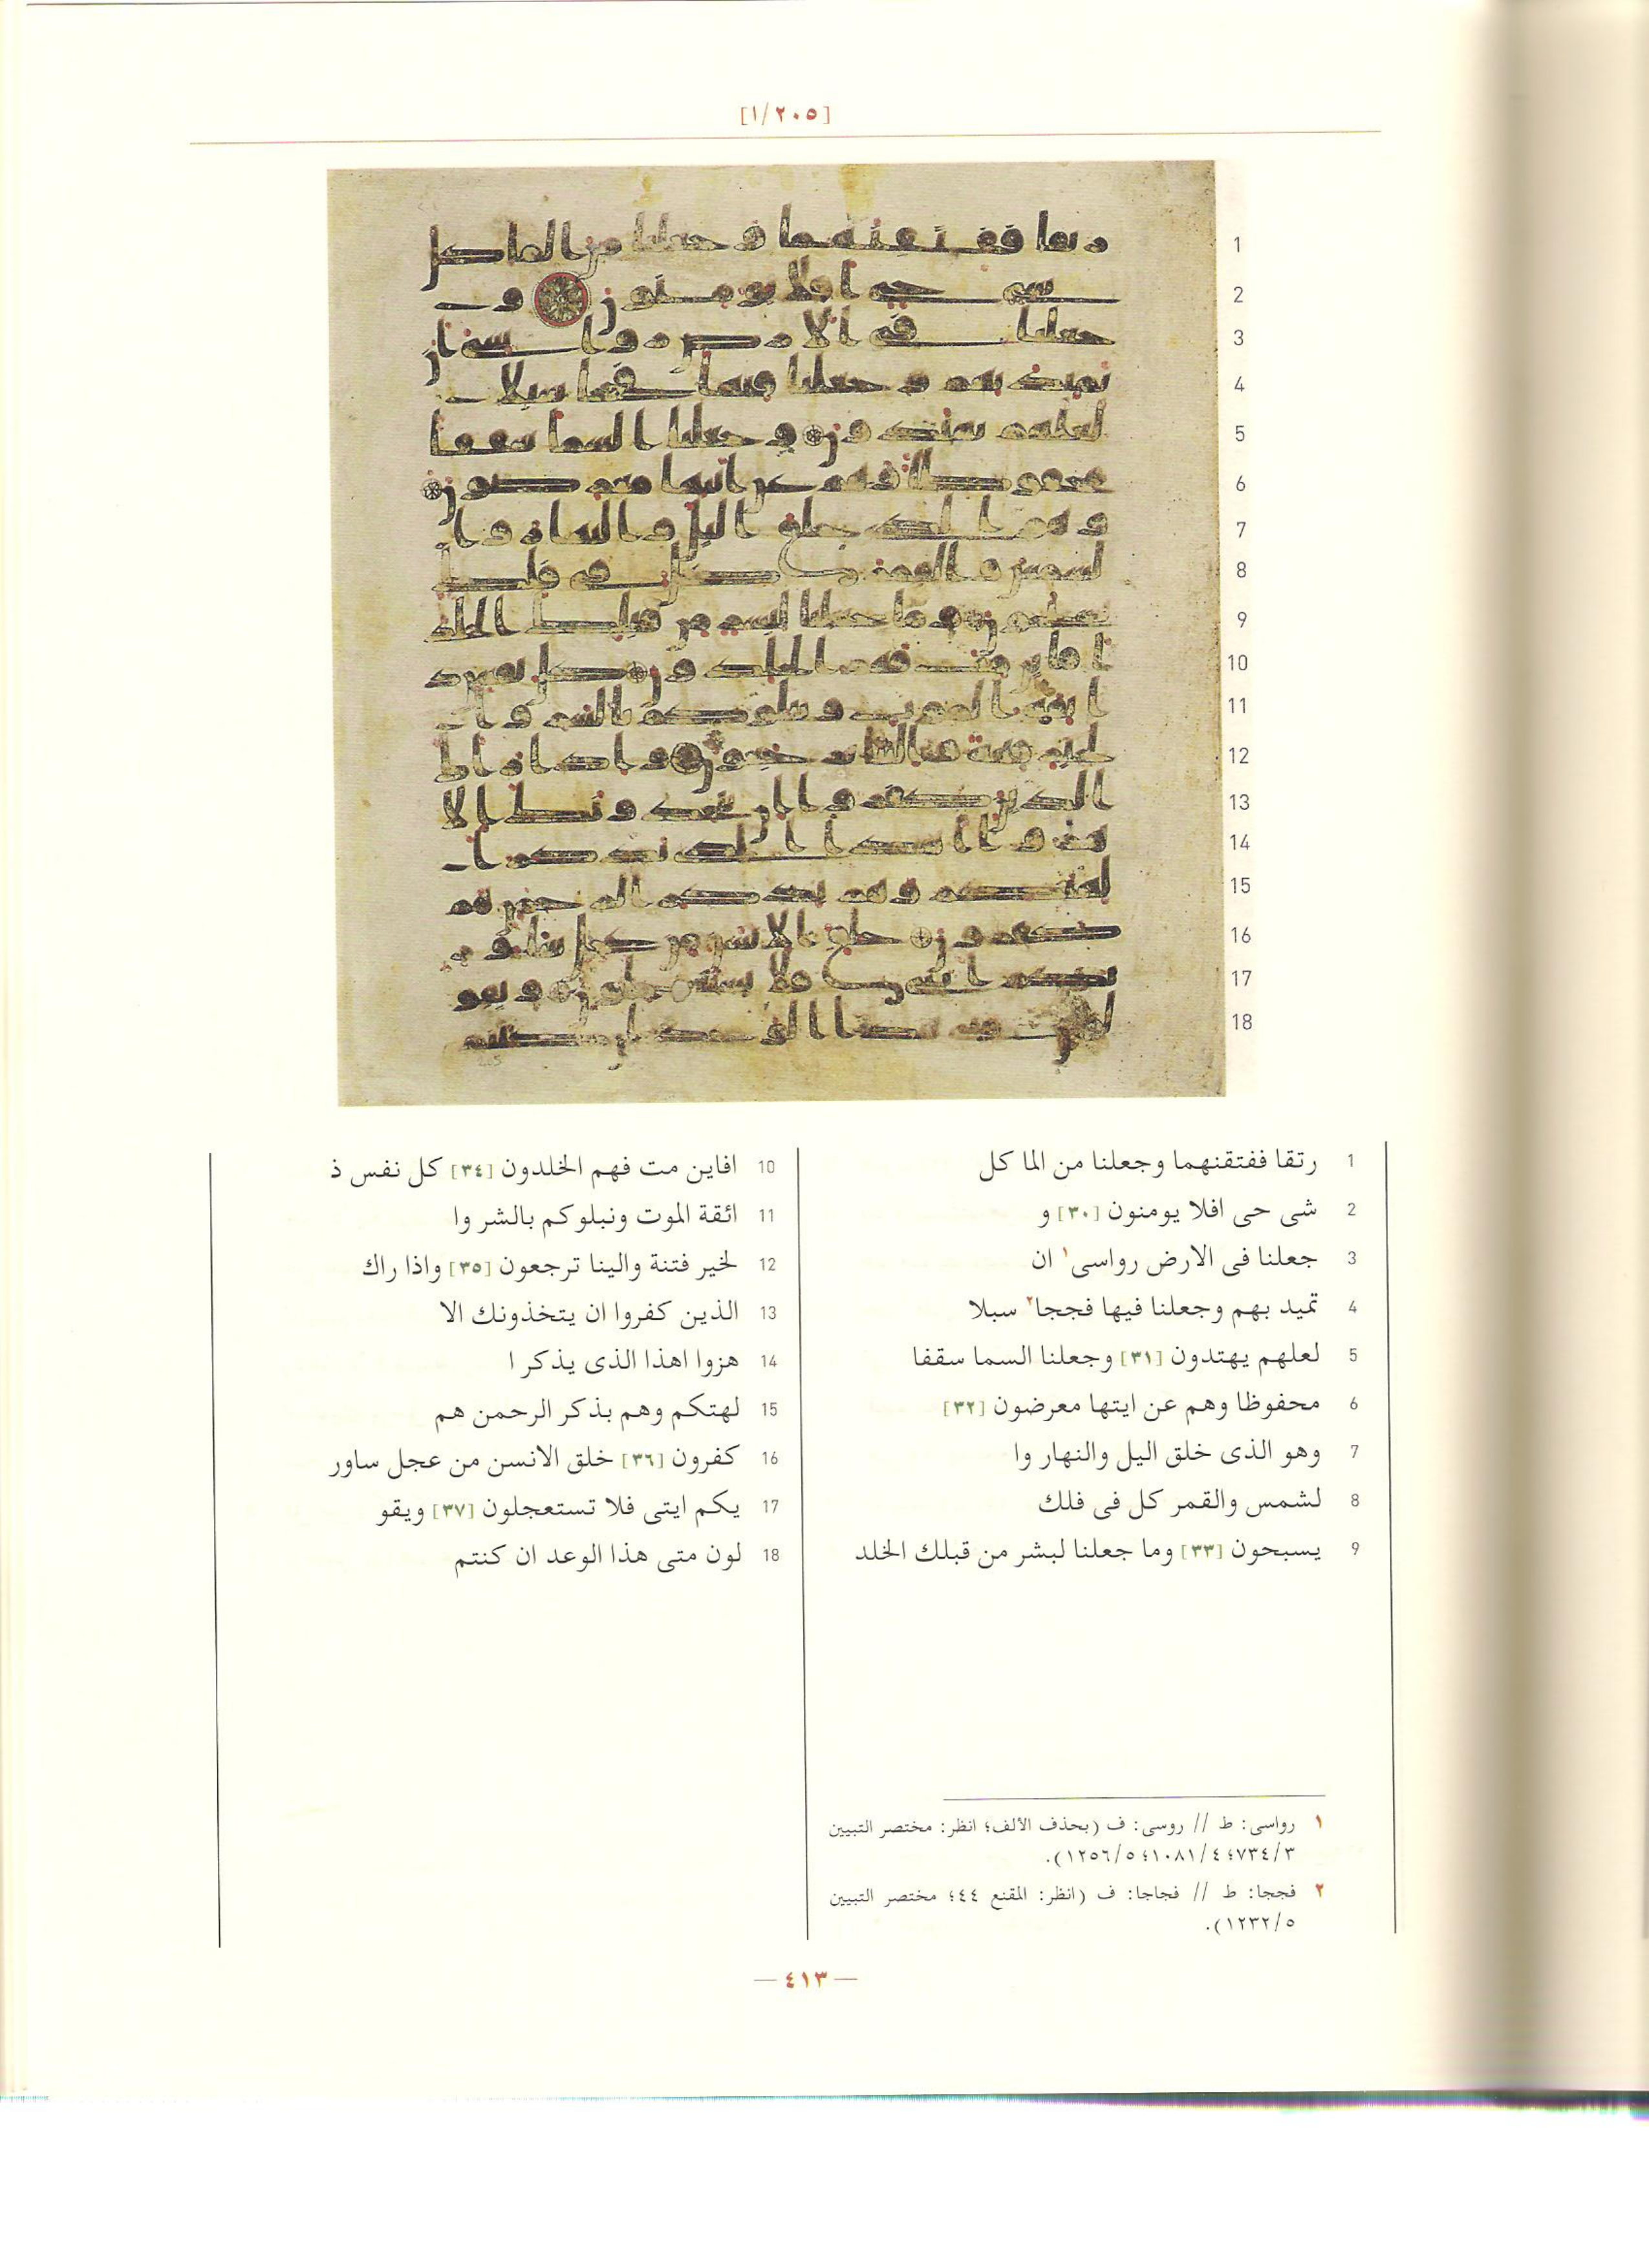 [١/٢٠٥]
1 رتقا ففتقنهما وجعلنا من الما كل
2 شى حى افلا يومنون [٣٠] و
3 جعلنا فى الارض رواسى١ ان
4 تميد بهم وجعلنا فيها فججا٢ سبلا
5 لعلهم يهتدون [٣١] وجعلنا السما سقفا
6 محفوظا وهم عن ايتها معرضون [٣٢]
7 وهو الذى خلق اليل والنهار وا
8 لشمس والقمر كل فى فلك
9 يسبحون [٣٣] وما جعلنا لبشر من قبلك الخلد
10 افاين مت فهم الخلدون [٣٤] كل نفس ذ
11 ائقة الموت ونبلوكم بالشر وا
12 لخير فتنة والينا ترجعون [٣٥] واذا راك
13 الذين كفروا ان يتخذونك الا
14 هزوا اهذا الذى يذكر ا
15 لهتكم وهم بذكر الرحمن هم
16 كفرون [٣٦] خلق الانسن من عجل ساور
17 يكم ايتى فلا تستعجلون [٣٧] ويقو
18 لون متى هذا الوعد ان كنتم
١ رواسى: ط // روسى: ف (بحذف الألف؛ انظر: مختصر التبيين
٣/٧٣٤؛ ٤/١٠٨١؛ ٥/١٢٥٦).
٢ فججا: ط // فجاجا: ف (انظر: المقنع ٤٤؛ مختصر التبيين
٥/١٢٣٢).
— ٤١٣ —